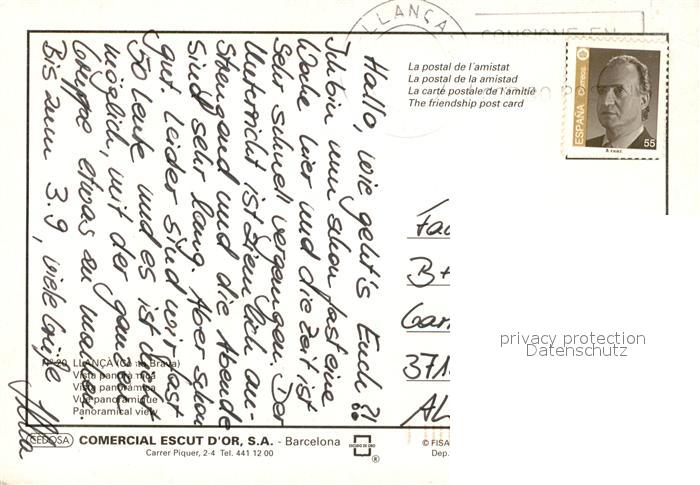 LLANÇÀ
CONSIGNE EN
La postal de l'amistat
La postal de la amistad
La carte postale de l'amitié
The friendship post card
ESPAÑA
Correos
55
Hallo, wie geht's Euch?!
Ich bin nun schon fast eine
Woche hier und die Zeit ist
sehr schnell vergangen. Der
Unterricht ist ziemlich an-
strengend und die Abende
sind sehr lang. Aber schon
gut. Leider sind wir fast
50 Leute und es ist nicht
möglich, mit der ganzen
Gruppe etwas zu machen.
Bis zum 3.9, viele Grüße
B+
371
AL
privacy protection
Datenschutz
N.º 20 LLANÇÀ (Costa Brava)
Vista panoràmica
Vista panorámica
Vue panoramique
Panoramical view
CEDOSA
COMERCIAL ESCUT D'OR, S.A. - Barcelona
Carrer Piquer, 2-4 Tel. 441 12 00
ESCUDO DE ORO
®
© FISA
Dep.